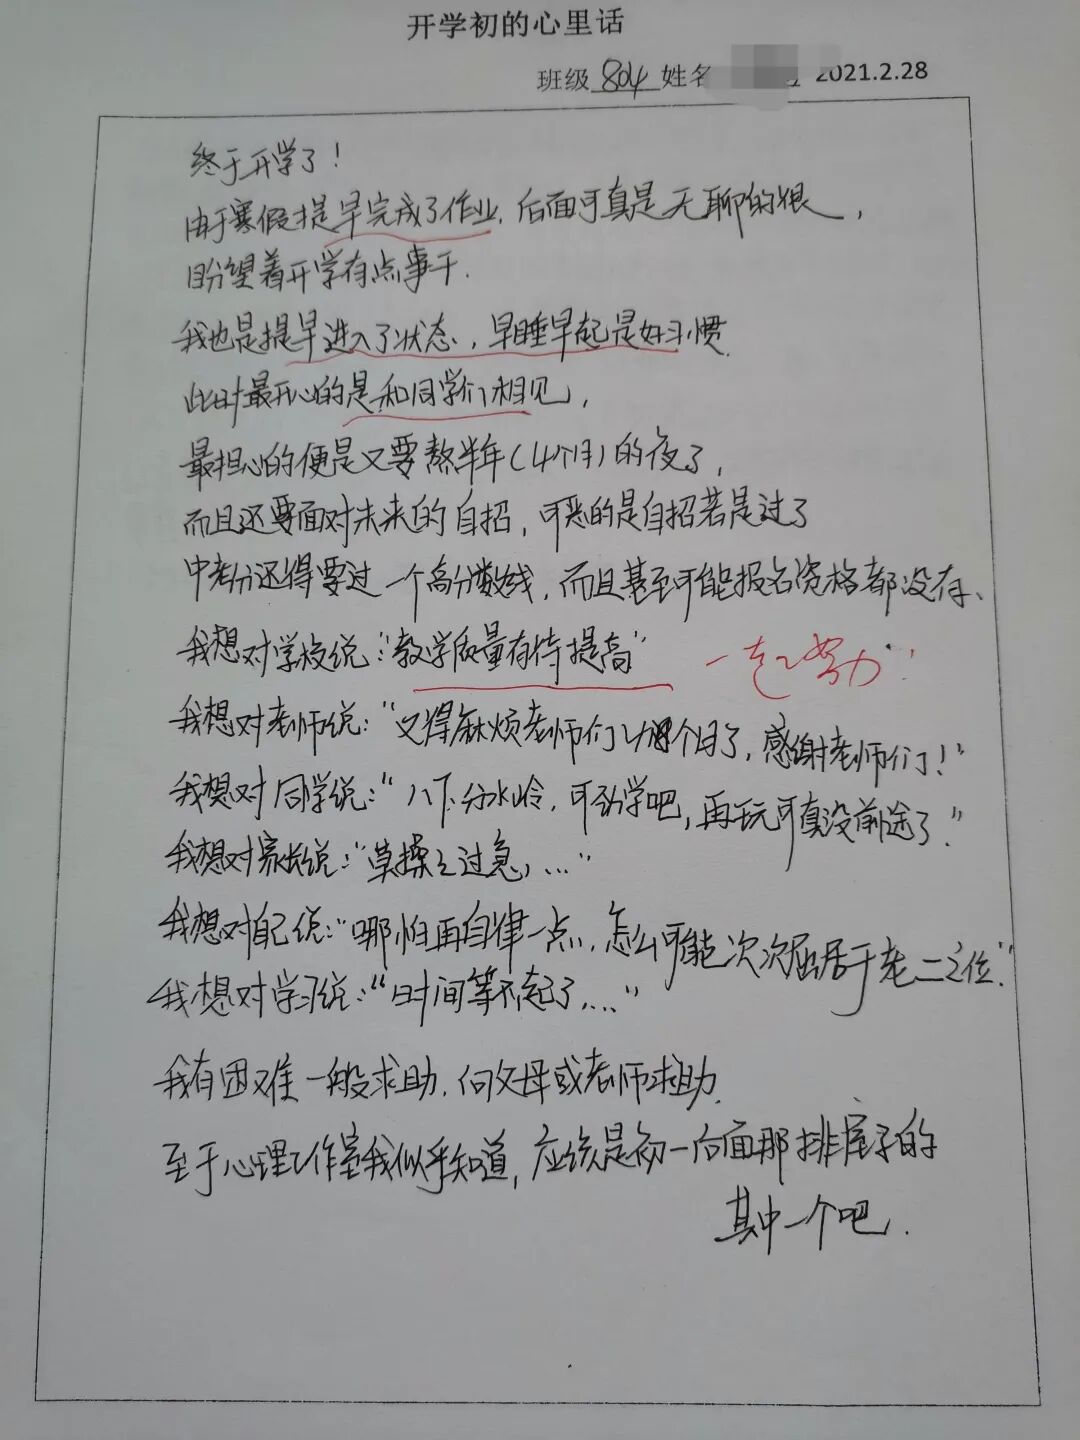 开学初的心里话
班级 804 姓名 2021.2.28
终于开学了！
由于寒假提早完成了作业，后面可真是无聊的很，
盼望着开学有点事干.
我也是提早进入了状态，早睡早起是好习惯.
此时最开心的是和同学们相见，
最担心的便是又要熬半年(4个月)的夜了，
而且还要面对未来的自招，可恶的是自招若是过了
中考分还得要过一个高分数线，而且甚至可能报名资格都没有、
我想对学校说："教学质量有待提高"
一起努力！
我想对老师说："又得麻烦老师们个月了，感谢老师们！"
我想对同学说："八下分水岭，可劲学吧，再玩可真没前途了."
我想对家长说："草操之过急，..."
我想对自己说："哪怕再自律一点，怎么可能次次屈居于老二之位."
我想对学习说："时间等不起了...."
我有困难一般求助，向父母或老师求助.
至于心理工作室我似乎知道，应该是初一后面那排屋子的
其中一个吧.